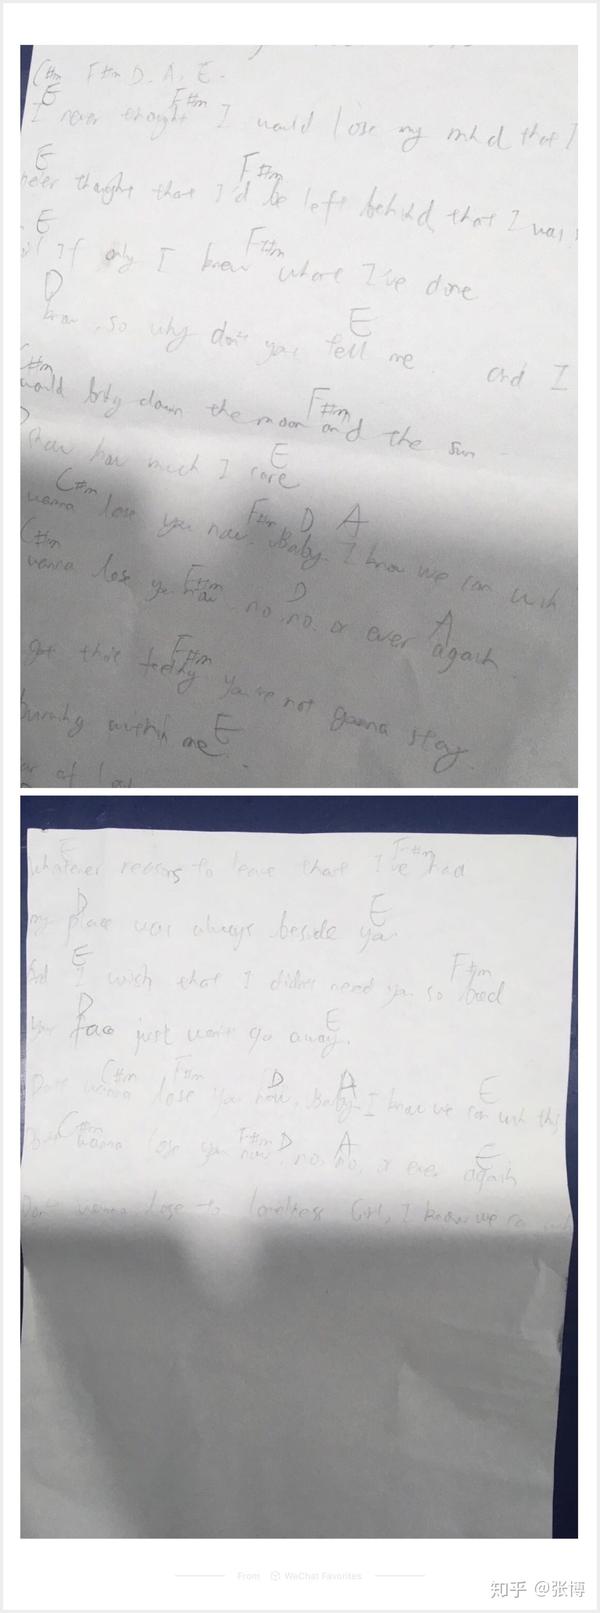 C#m F#m D. A. E.
E F#m
I never thought I would lose my mind that I
E F#m
never thought that I'd be left behind, that I was
E F#m
if only I knew where I've done
D E
know, so why don't you tell me and I
C#m F#m
would bring down the moon and the sun
E
show how much I care
C#m F#m D A
wanna lose you now. Baby. I know we can win
C#m F#m D A
wanna lose you now no, no. or ever again.
F#m
got this feeling you're not gonna stay.
E
burning within me
of
E F#m
Whatever reasons to leave that I've had
D E
my place was always beside you
E F#m
And I wish that I didn't need you so bad
D E
your face just won't go away.
C#m F#m D A E
Don't wanna lose you now, Baby I know we can win this
C#m F#m D A E
Don't wanna lose you now, no, no, or ever again
Don't wanna lose to loneliness Girl, I know we can
From WeChat Favorites
知乎 @张博